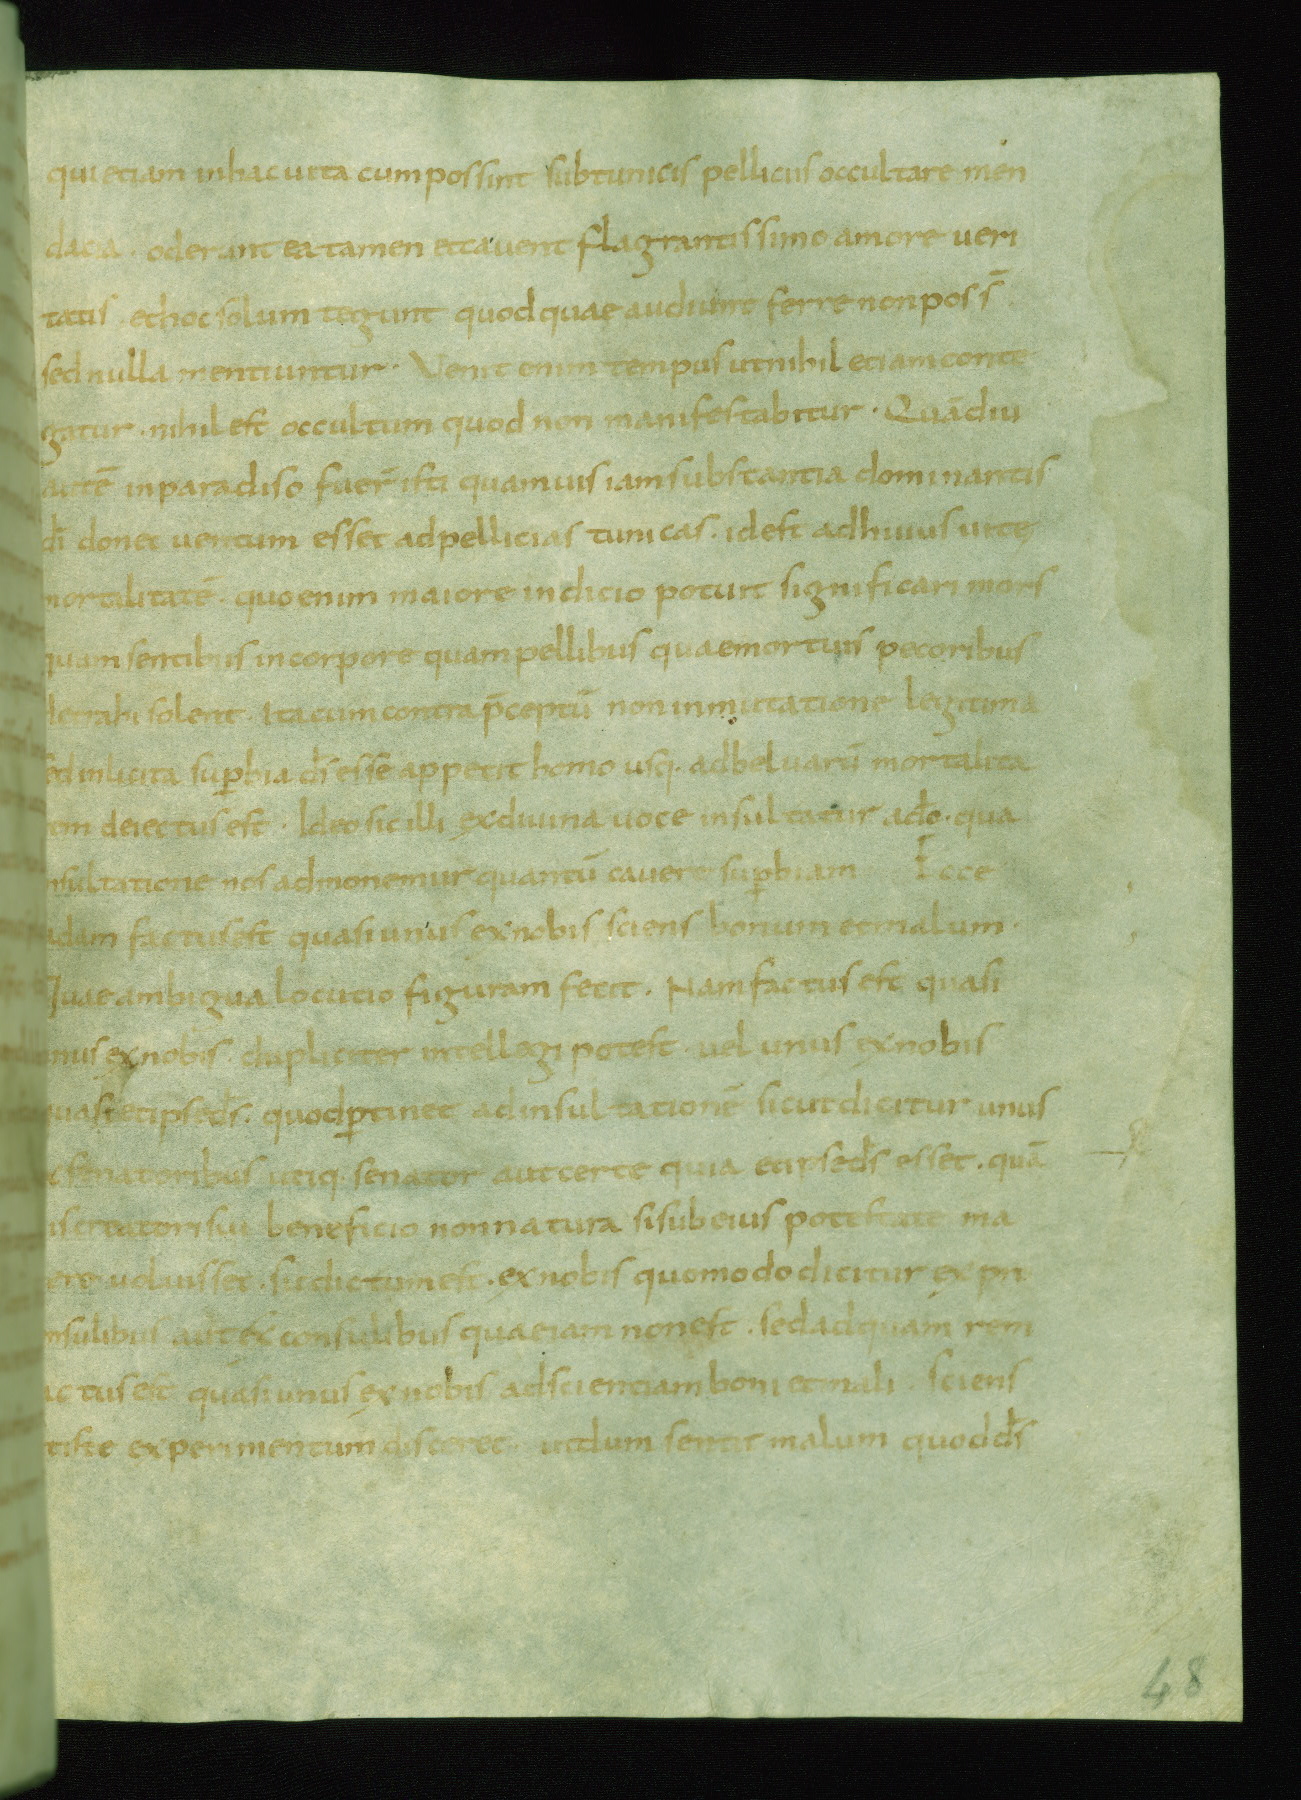 qui etiam in hac uita cum possint sub tunicis pelliciis occultare men
dacia · oderunt ea tamen et cauent flagrantissimo amore ueri
tatis · et hoc solum tegunt quod quae audiunt ferre non poss̄
sed nulla mentiuntur · Venit enim tempus ut nihil etiam conte
gatur · nihil est occultum quod non manifestabitur · Quādiu
autē in paradiso fuer̄ isti quamuis iam sub stantia dominantis
dī donec uentum esset ad pellicias tunicas · id est ad huius uitę
mortalitatē · quo enim maiore indicio potuit significari mors
quam sentibus in corpore quam pellibus quae mortuis pecoribus
detrahi solent · Ita cum contra p̄ceptū non inmittatione legitima
sed inlicita sup̱bia dī esse appetit homo usq· ad beluarū mortalita
tem deiectus est · Ideo sic illi ex diuina uoce insultatur ad̄o · qua
insultatione nos admonemur quantū cauere sup̱biam Ecce
adam factus est quasi unus ex nobis sciens bonum et malum ·
Quae ambigua locutio figuram fecit · Nam factus est quasi
unus ex nobis · dupliciter intellegi potest · uel unus ex nobis
quasi et ipse dī · quod p̱tinet ad insultationē sicut dicitur unus
ex senatoribus utiq· senator aut certe quia et ipse d̄s esset · quā
uis creatoris sui beneficio non natura si sub eius potestate ma
nere uoluisset · sic dictum est · ex nobis quomodo dicitur ex pro
consulibus aut ex consulibus quae iam non est · sed ad quam rem
factus est quasi unus ex nobis ad scientiam boni et mali · sciens
ut iste experimentum disceret · ut dum sentit malum quod d̄s
48